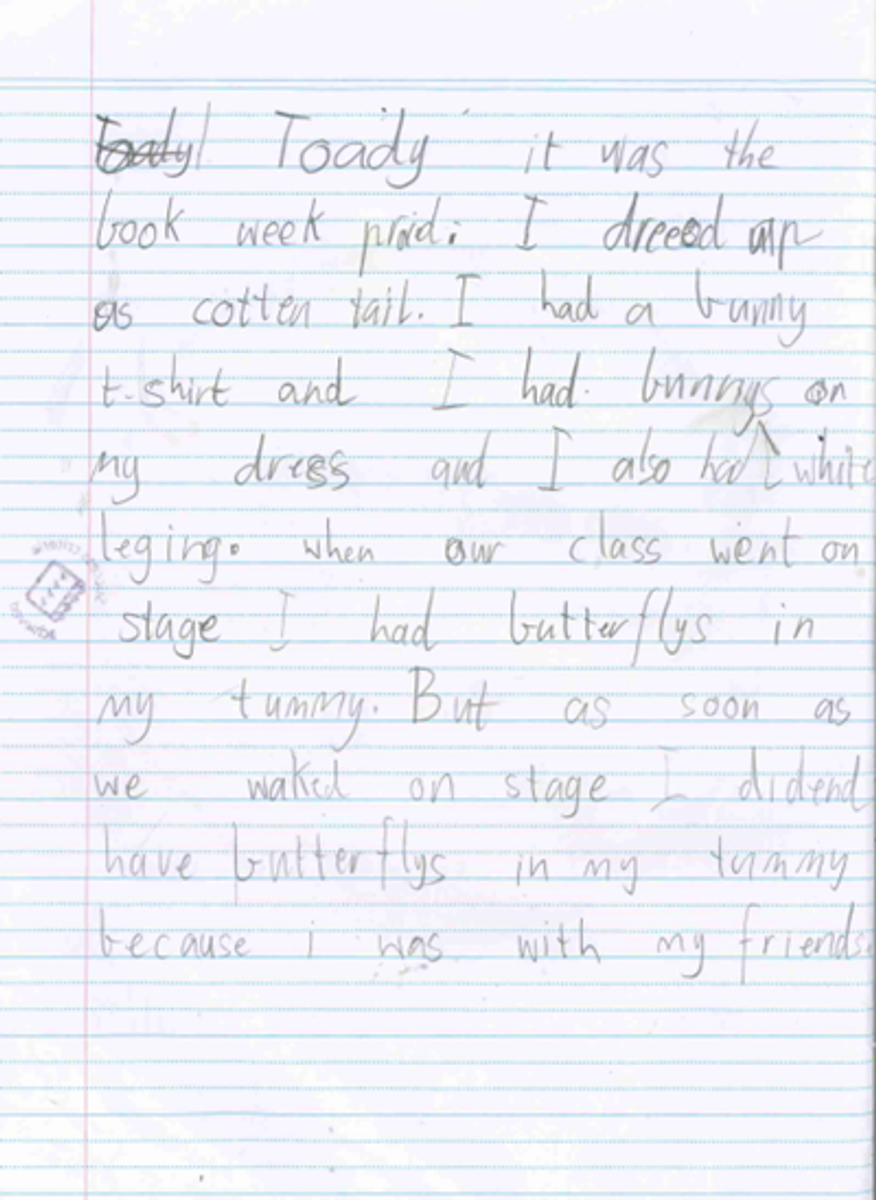 Toady it was the
book week prid. I dreesd up
as cotten tail. I had a bunny
t-shirt and I had bunnys on
my dress and I also had white
leging. when our class went on
stage I had butterflys in
my tummy. But as soon as
we waked on stage I didend
have butterflys in my tummy
because i was with my friends.